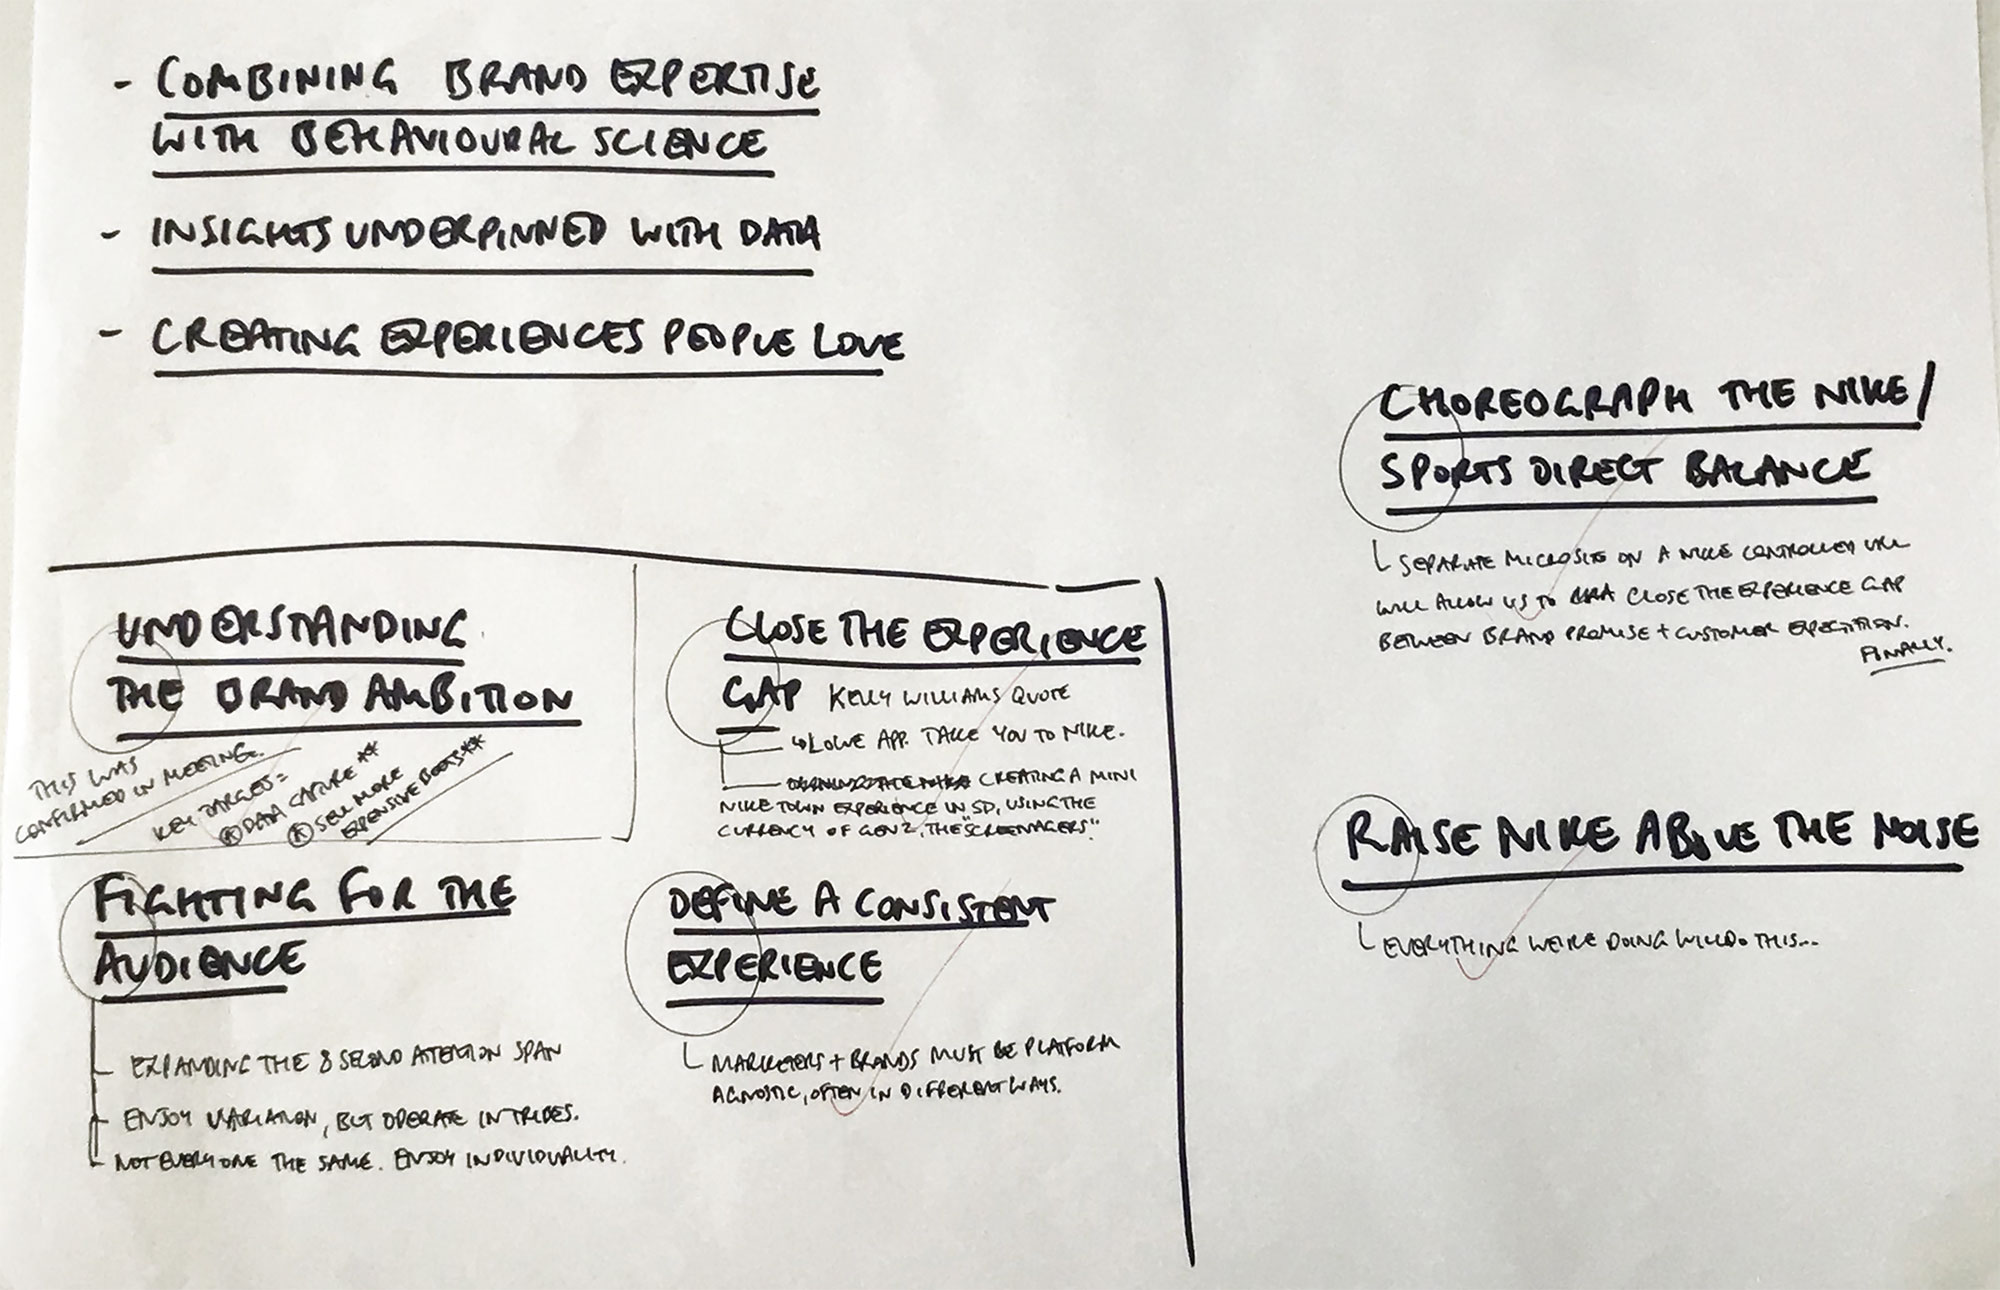 - COMBINING BRAND EXPERTISE
WITH BEHAVIOURAL SCIENCE
- INSIGHTS UNDERPINNED WITH DATA
- CREATING EXPERIENCES PEOPLE LOVE
UNDERSTANDING
THE BRAND AMBITION
THIS WAS
CONFIRMED IN MEETING.
KEY TARGETS =
DATA CAPTURE **
SELL MORE
EXPENSIVE BOOTS **
CLOSE THE EXPERIENCE
GAP KELLY WILLIAMS QUOTE
APP. TAKE YOU TO NIKE.
CREATING A MINI
NIKE TOWN EXPERIENCE IN SD, USING THE
CURRENCY OF GEN Z, THE "SCREENAGERS".
FIGHTING FOR THE
AUDIENCE
EXPANDING THE 8 SECOND ATTENTION SPAN
ENJOY VARIATION, BUT OPERATE IN TRIBES.
NOT EVERYONE THE SAME. ENJOY INDIVIDUALITY.
DEFINE A CONSISTENT
EXPERIENCE
MARKETERS + BRANDS MUST BE PLATFORM
AGNOSTIC, OFTEN IN DIFFERENT WAYS.
CHOREOGRAPH THE NIKE/
SPORTS DIRECT BALANCE
SEPARATE MICROSITE ON A NIKE CONTROLLED URL
WILL ALLOW US TO CLOSE THE EXPERIENCE GAP
BETWEEN BRAND PROMISE + CUSTOMER EXPECTATION.
FINALLY.
RAISE NIKE ABOVE THE NOISE
EVERYTHING WE'RE DOING WILL DO THIS...